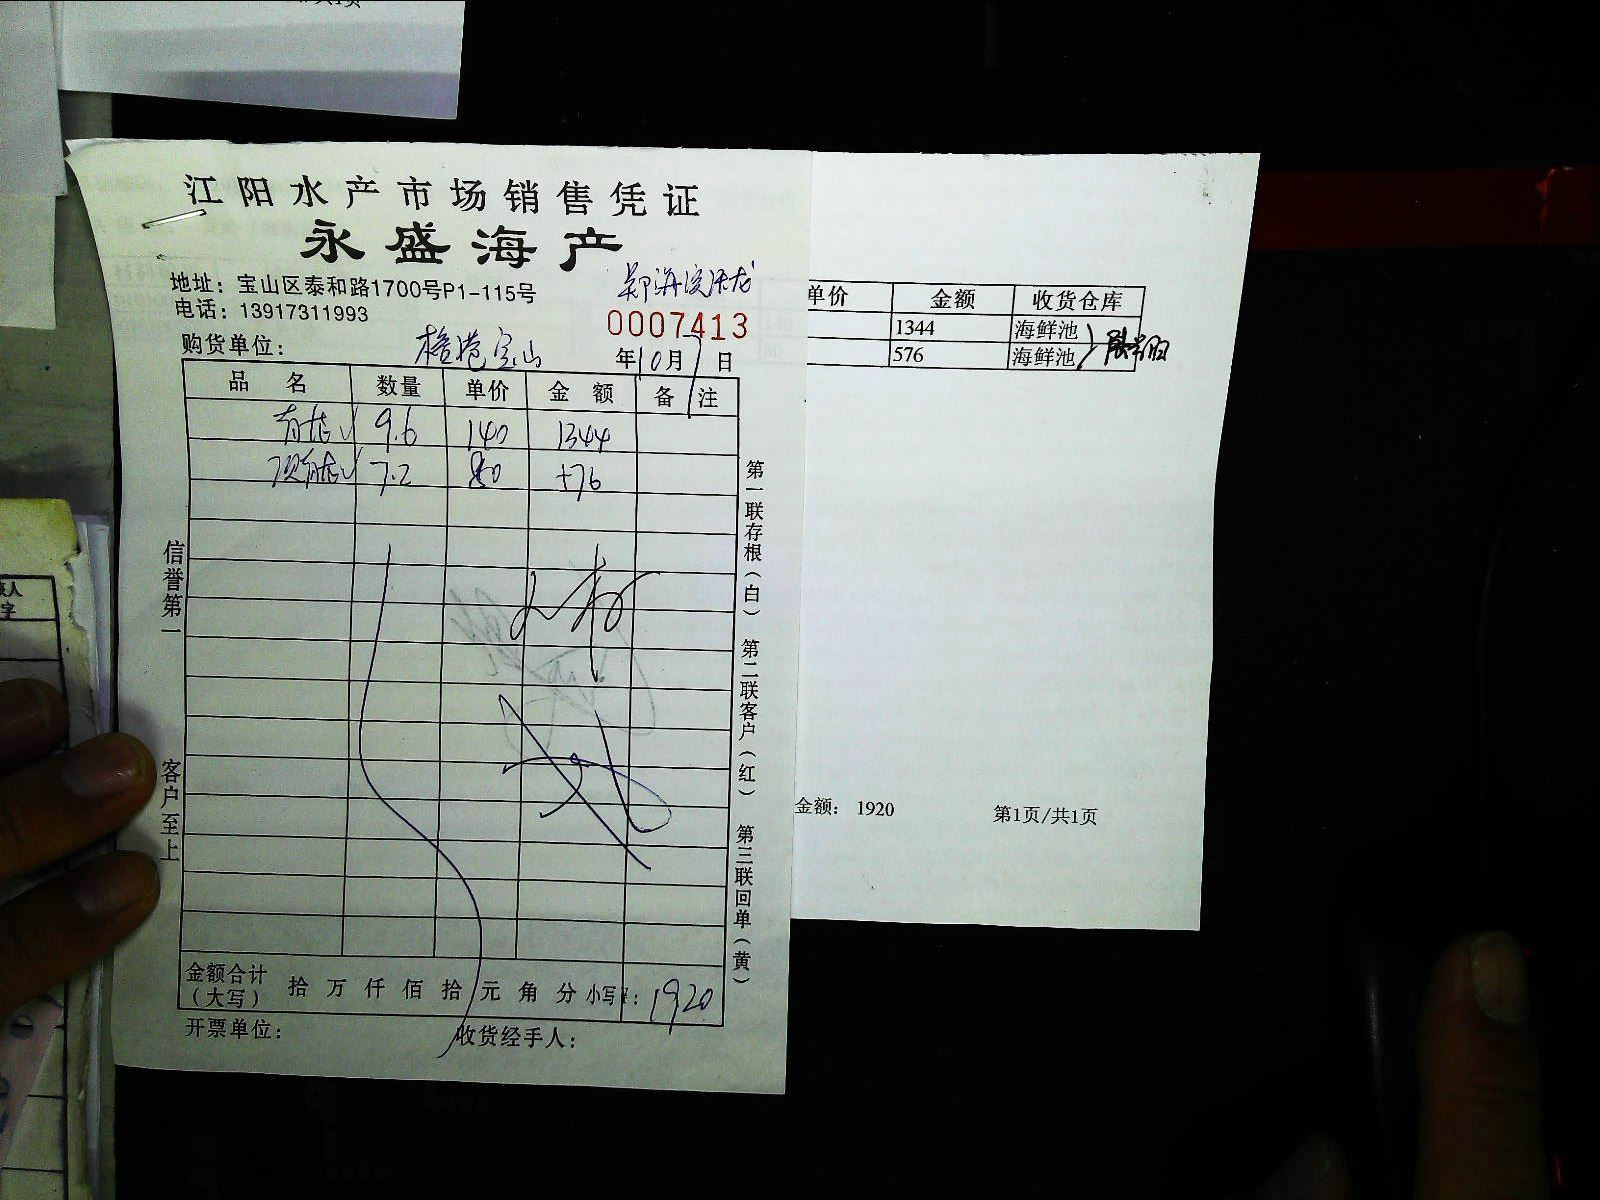 共1页
江阳水产市场销售凭证
永盛海产
地址：宝山区泰和路1700号P1-115号
电话：13917311993
0007413
购货单位： 宝山 年10月7日
品 名 数量 单价 金 额 备 注
9.6 140 1344
7.2 80 576
信誉第一
客户至上
第一联存根（白） 第二联客户（红） 第三联回单（黄）
金额合计（大写） 拾 万 仟 佰 拾 元 角 分 小写： 1920
开票单位： 收货经手人：
单价 金额 收货仓库
1344 海鲜池
576 海鲜池
金额： 1920 第1页/共1页
人
字